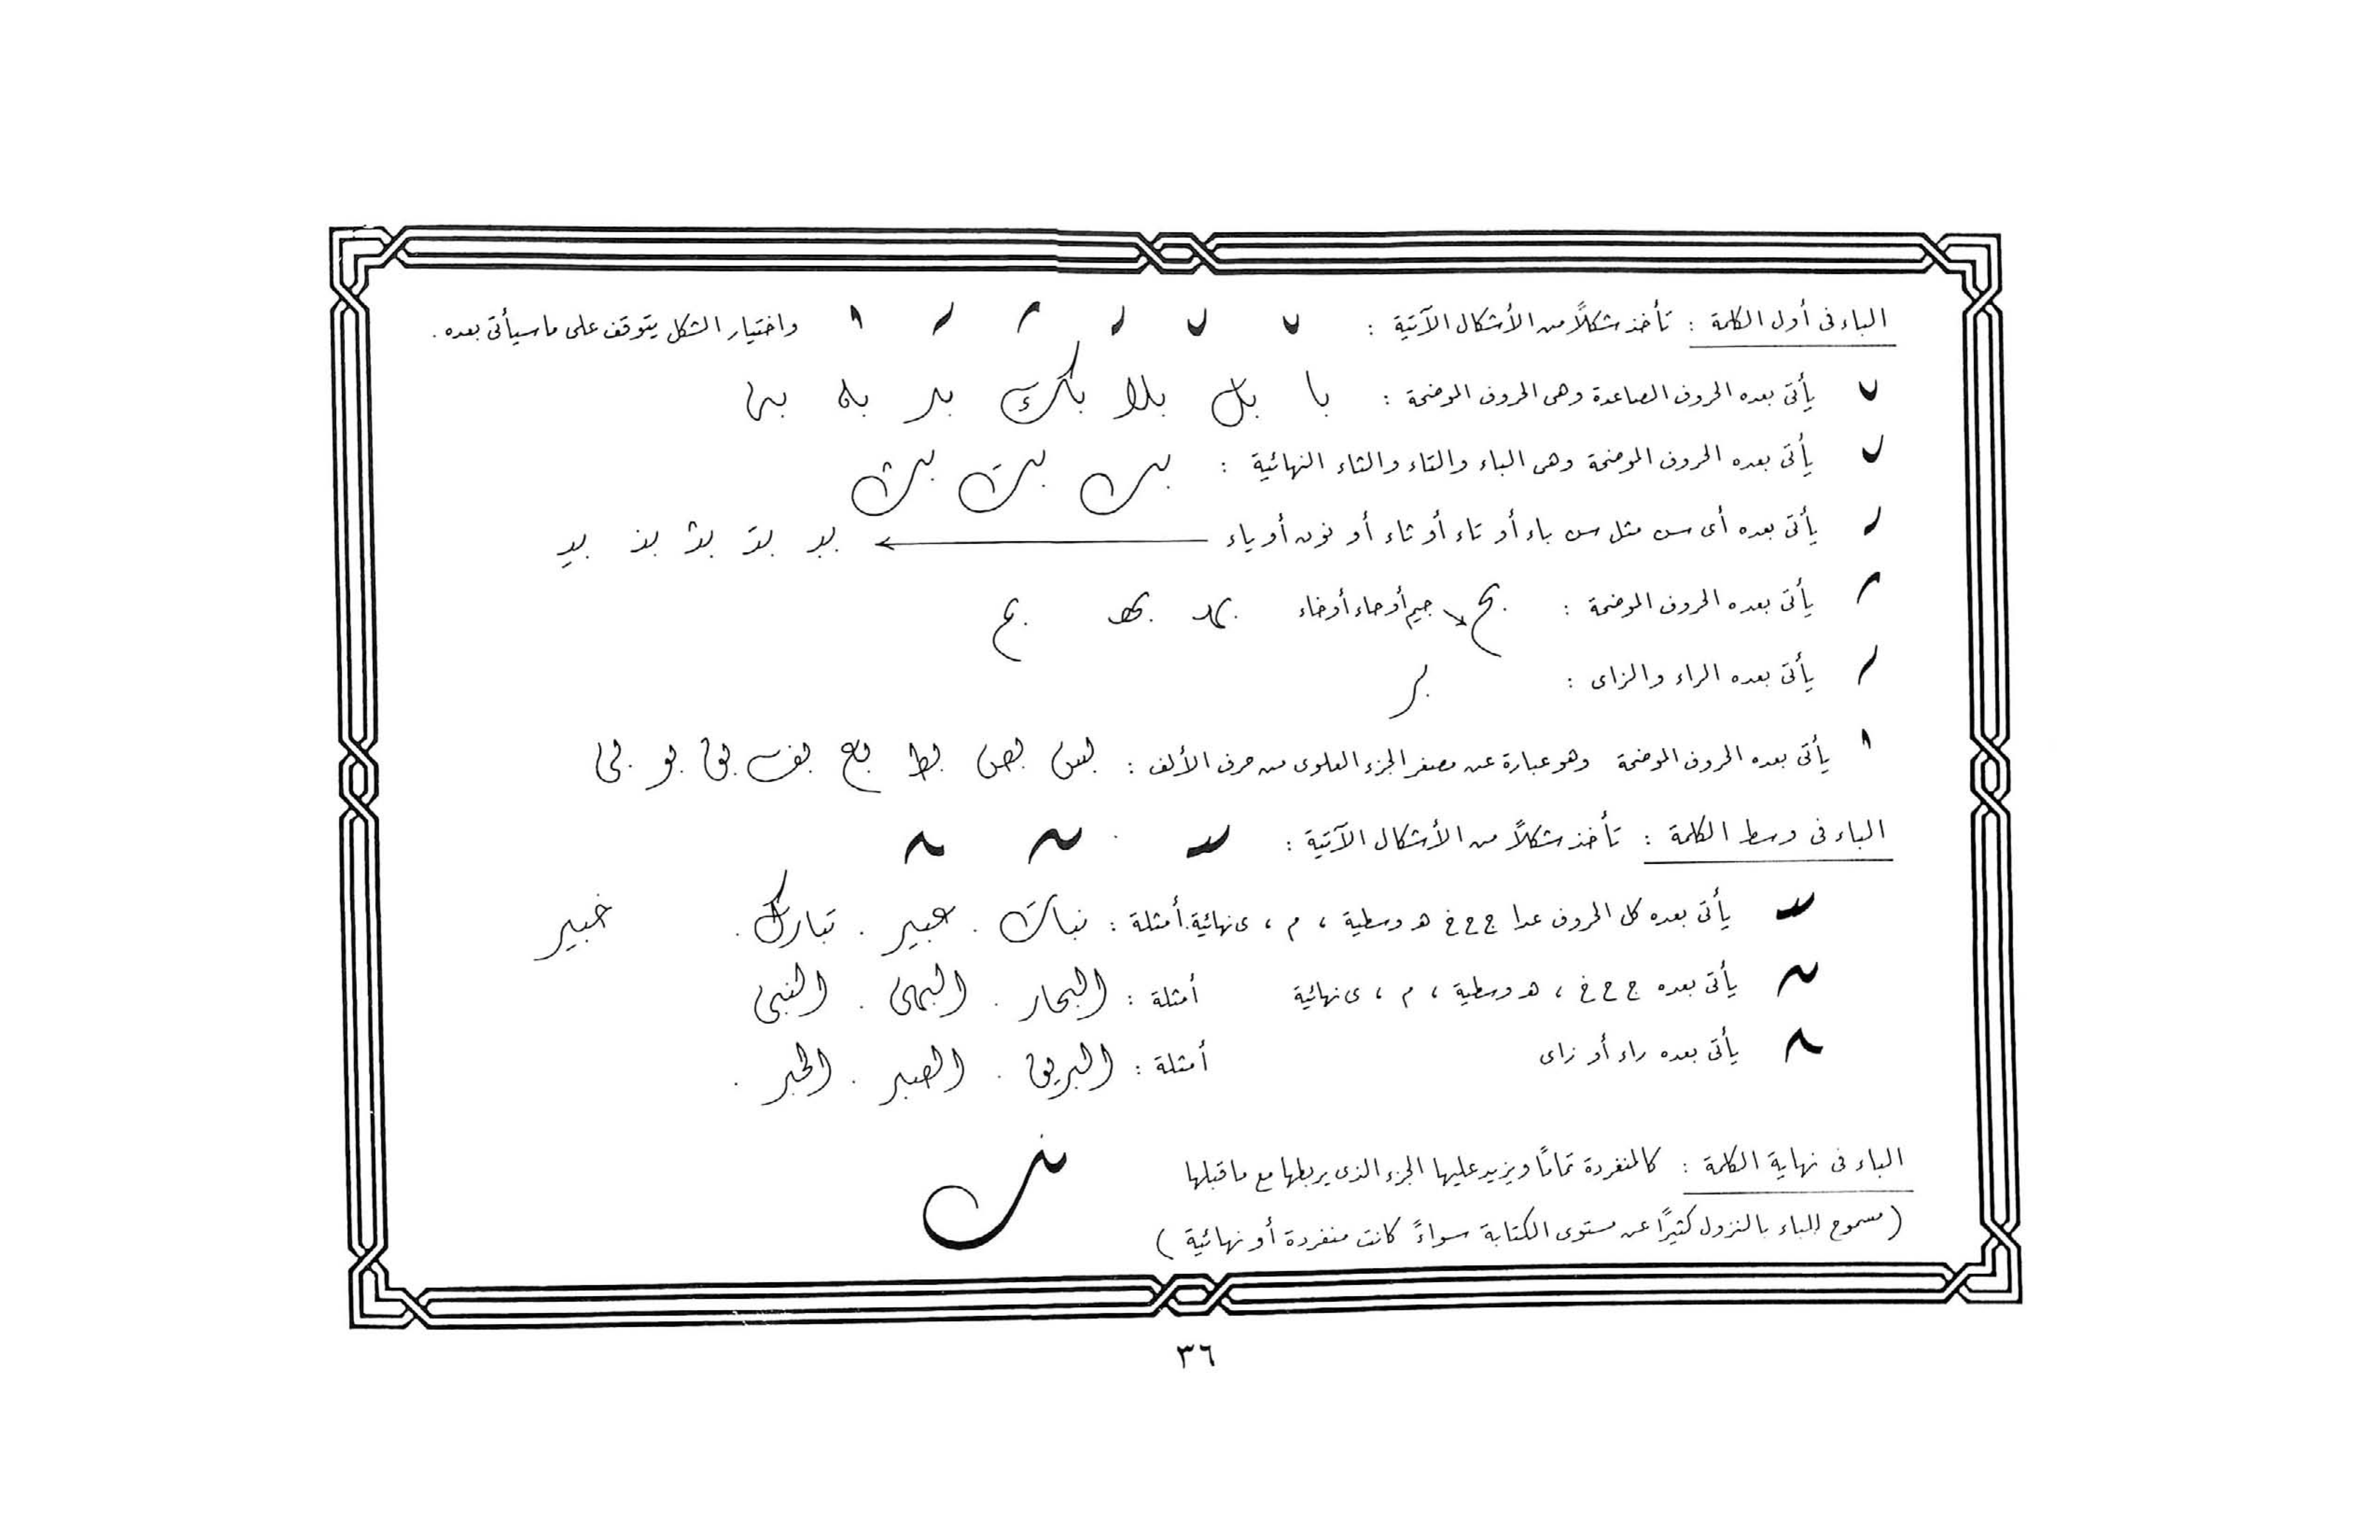 الباء فى أول الكلمة : تأخذ شكلاً من الأشكال الآتية : واختيار الشكل يتوقف على ما سيأتى بعده .
يأتى بعده الحروف الصاعدة وهى الحروف الموضحة : با بل بلا بك بد به
يأتى بعده الحروف الموضحة وهى الباء والتاء والثاء النهائية : بب بت بث
يأتى بعده أى سن مثل سن باء أو تاء أو ثاء أو نون أو ياء
يأتى بعده الحروف الموضحة : بح جيم أو حاء أو خاء بمد بهد بم
يأتى بعده الراء والزاى : بر
يأتى بعده الحروف الموضحة وهو عبارة عن مصغر الجزء العلوى من حرف الألف : بس بص بط بع بف بق بو بى
الباء فى وسط الكلمة : تأخذ شكلاً من الأشكال الآتية :
يأتى بعده كل الحروف عدا ج ح خ هـ وسطية ، م ، ى نهائية . أمثلة : نبات . عبير . تبارك . خبير
يأتى بعده ج ح خ ، هـ وسطية ، م ، ى نهائية أمثلة : البحار . البهى . النبى
يأتى بعده راء أو زاى أمثلة : البريق . الصبر . الحبر .
الباء فى نهاية الكلمة : كالمنفردة تمامًا ويزيد عليها الجزء الذى يربطها مع ما قبلها
( مسموح للباء بالنزول كثيرًا عن مستوى الكتابة سواءً كانت منفردة أو نهائية )
٣٦